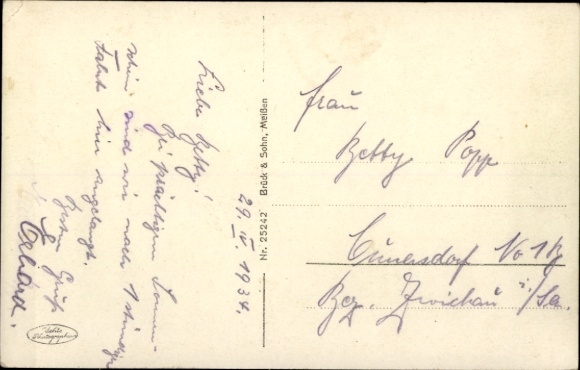 29. IV. 1934.
Liebe Betty!
Bei prächtigem Sonnen-
schein sind wir nach 1 stündiger
Fahrt hier angelangt.
Besten Gruß
Gerhard.
Nr. 25242 Brück & Sohn, Meißen
Frau
Betty Popp
Cunersdorf No 1
Bez. Zwickau i/Sa.
Echte
Photographie